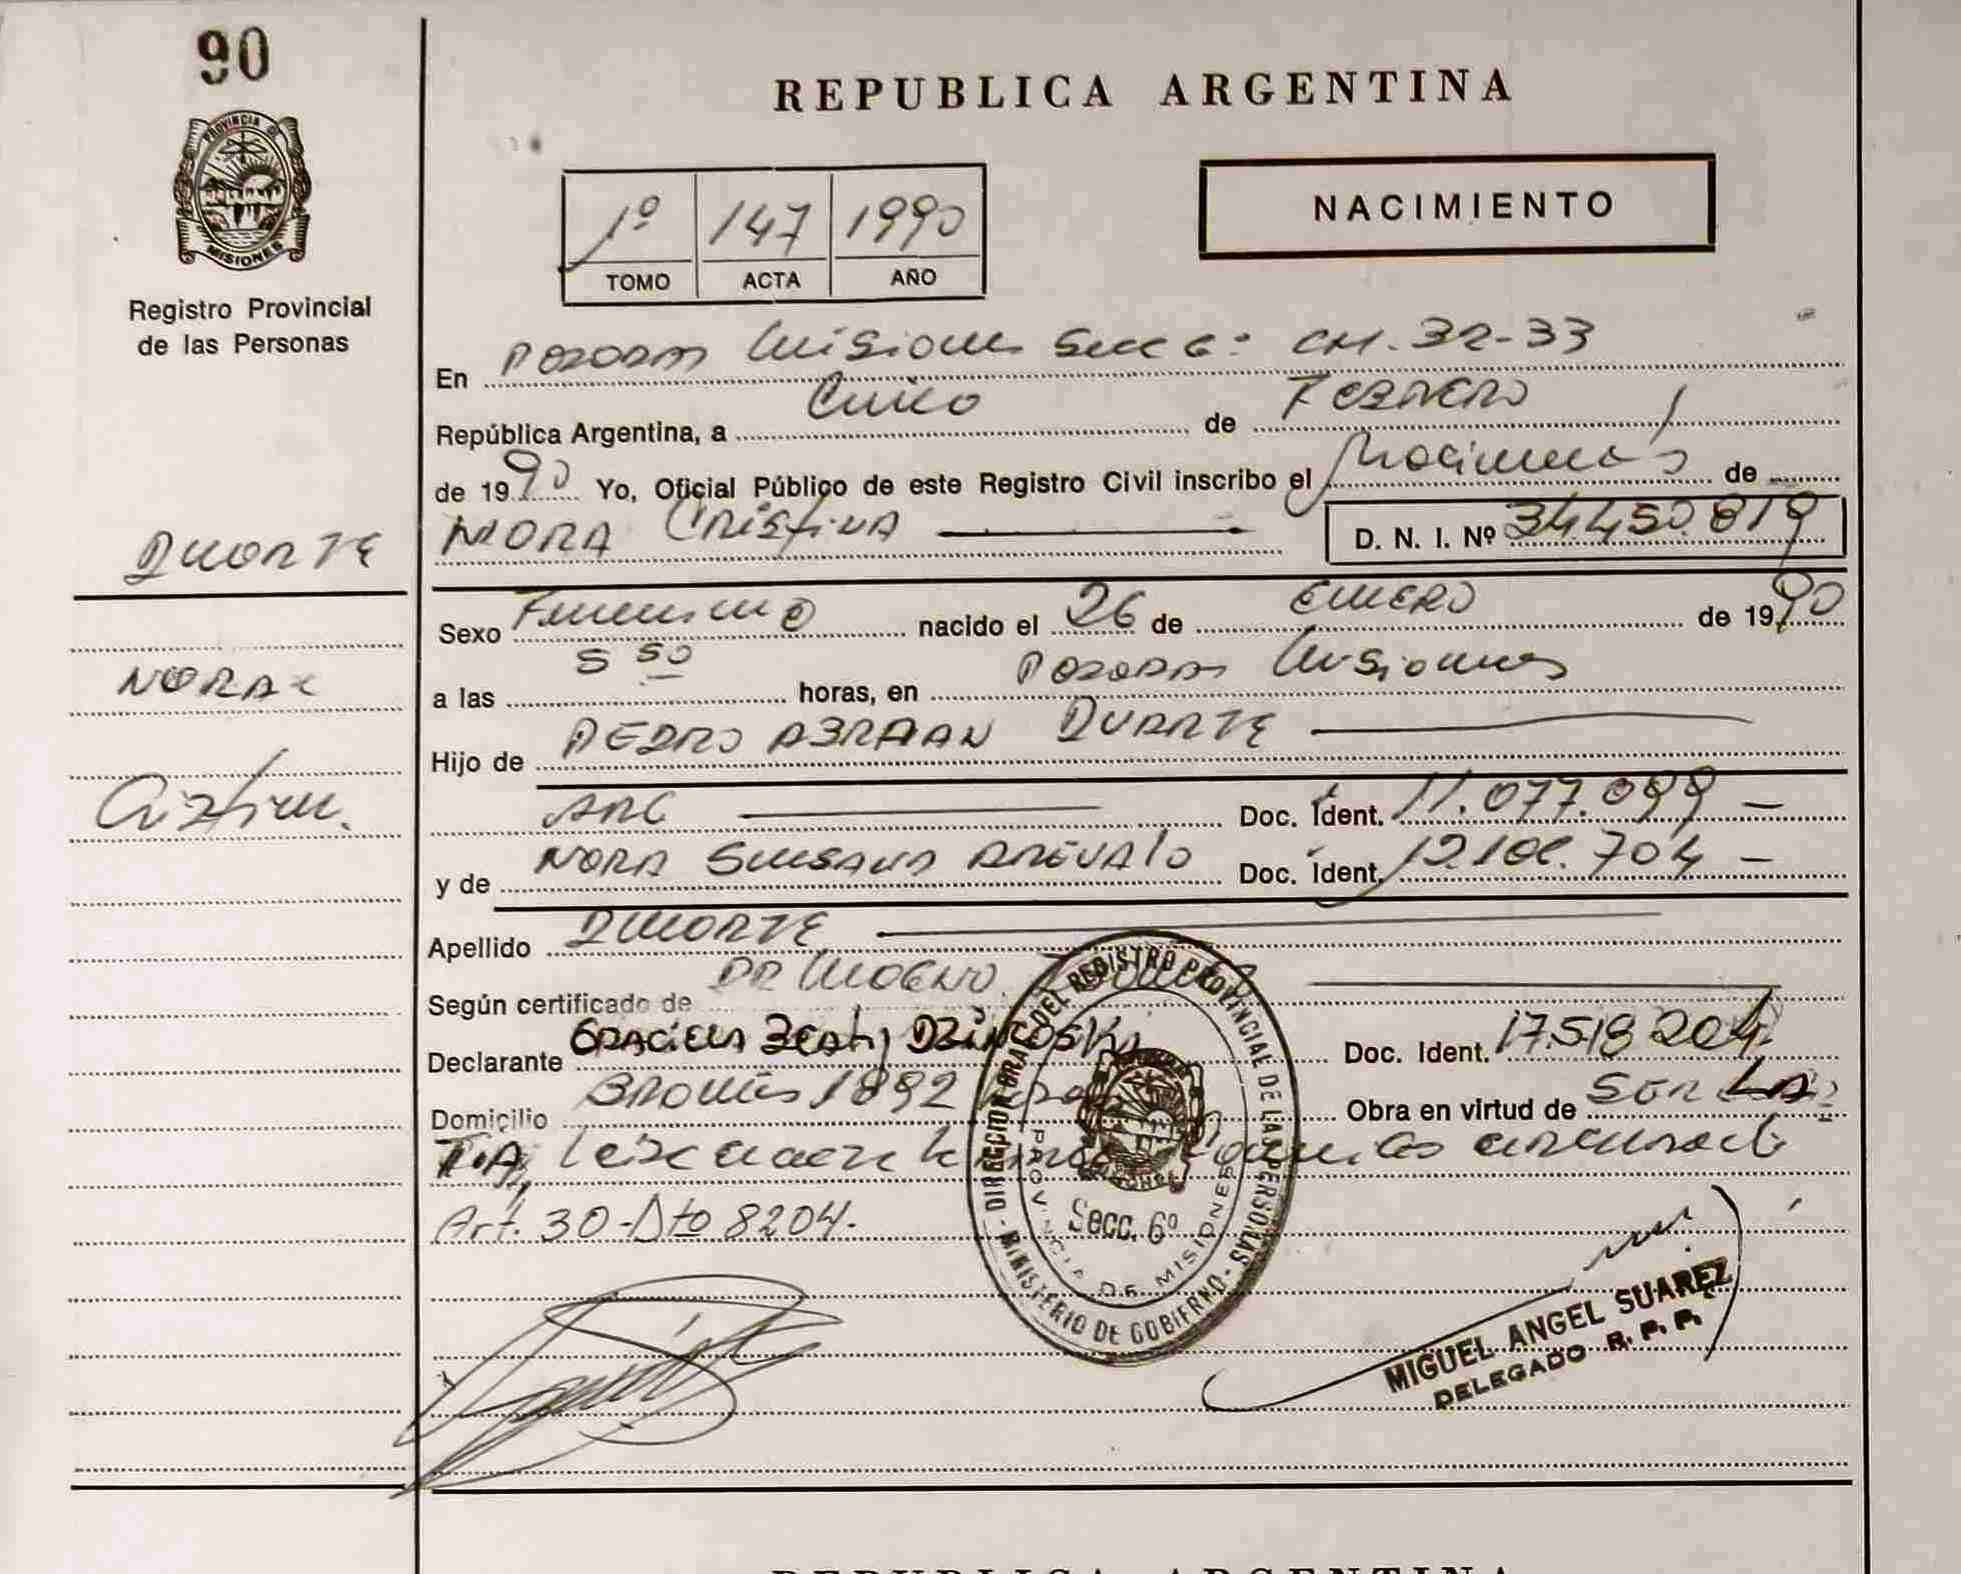 90
PROVINCIA DE
MISIONES
Registro Provincial
de las Personas
DUARTE
NORA
Cristina.
REPUBLICA ARGENTINA
1º 147 1990
TOMO ACTA AÑO
NACIMIENTO
En Posadas Misiones Secc 6: CH. 32-33
República Argentina, a Cinco de Febrero
de 1990 Yo, Oficial Público de este Registro Civil inscribo el Nacimiento de
NORA Cristina D. N. I. Nº 34450.819
Sexo Femenino nacido el 26 de ENERO de 1990
a las 5 50 horas, en Posadas Misiones
Hijo de PEDRO ABRAAN DUARTE
ARG Doc. Ident. 11.077.099
y de NORA SUSANA AREVALO Doc. Ident. 12.  .704
Apellido DUARTE
Según certificado de DR
Declarante GRACIELA Doc. Ident. 17518204
Domicilio 1892 Obra en virtud de SER LA
Art. 30-Dto 8204.
DIRECCION GRAL. DEL REGISTRO PROVINCIAL DE LAS PERSONAS
MINISTERIO DE GOBIERNO
PROVINCIA DE MISIONES
Secc. 6º
MIGUEL ANGEL SUAREZ
DELEGADO R. P. P.
REPUBLICA ARGENTINA